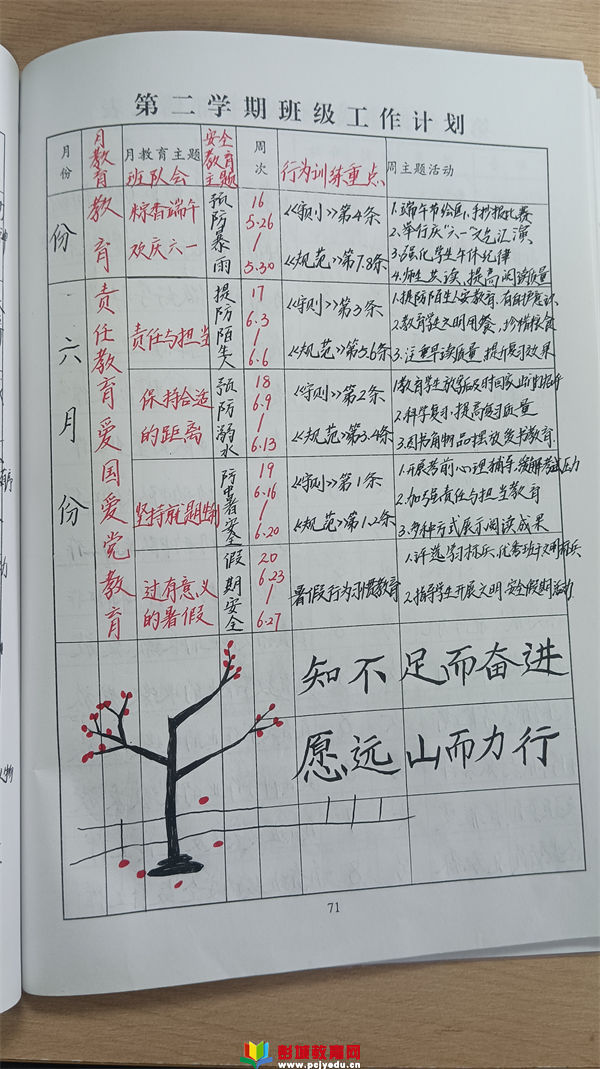 第二学期班级工作计划
月份 月教育 月教育主题 班队会 安全教育主题 周次 行为训练重点 周主题活动
份 教育 粽香端午 欢庆六一 预防暴雨 16 5.26 / 5.30 《守则》第4条 《规范》第7.8条
1.端午节绘画,手抄报比赛
2.举行庆"六一"文艺汇演
3.强化学生午休纪律
4.师生共读,提高阅读质量
六月份 责任教育 爱国爱党教育
责任与担当 提防陌生人 17 6.3 / 6.6 《守则》第3条 《规范》第5.6条
2.教育学生文明用餐,珍惜粮食
3.注重早读质量,提升复习效果
保持合适的距离 预防溺水 18 6.9 / 6.13 《守则》第2条 《规范》第3.4条
2.科学复习,提高复习质量
坚持就是胜利 防中暑安全 19 6.16 / 6.20 《守则》第1条 《规范》第1.2条
1.开展考前心理辅导,缓解考试压力
2.加强责任与担当教育
3.多种方式展示阅读成果
过有意义的暑假 假期安全 20 6.23 / 6.27 暑假行为习惯教育
2.指导学生开展文明,安全假期活动
知不足而奋进
愿远山而力行
71
彭城教育网
www.pcjyedu.cn